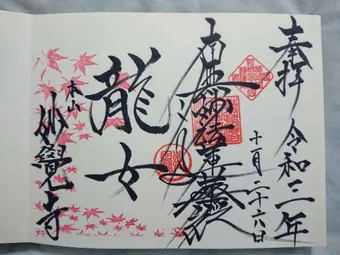 奉拝
令和三年
十月二十六日
南無妙法蓮華経
龍女
本山
妙覺寺